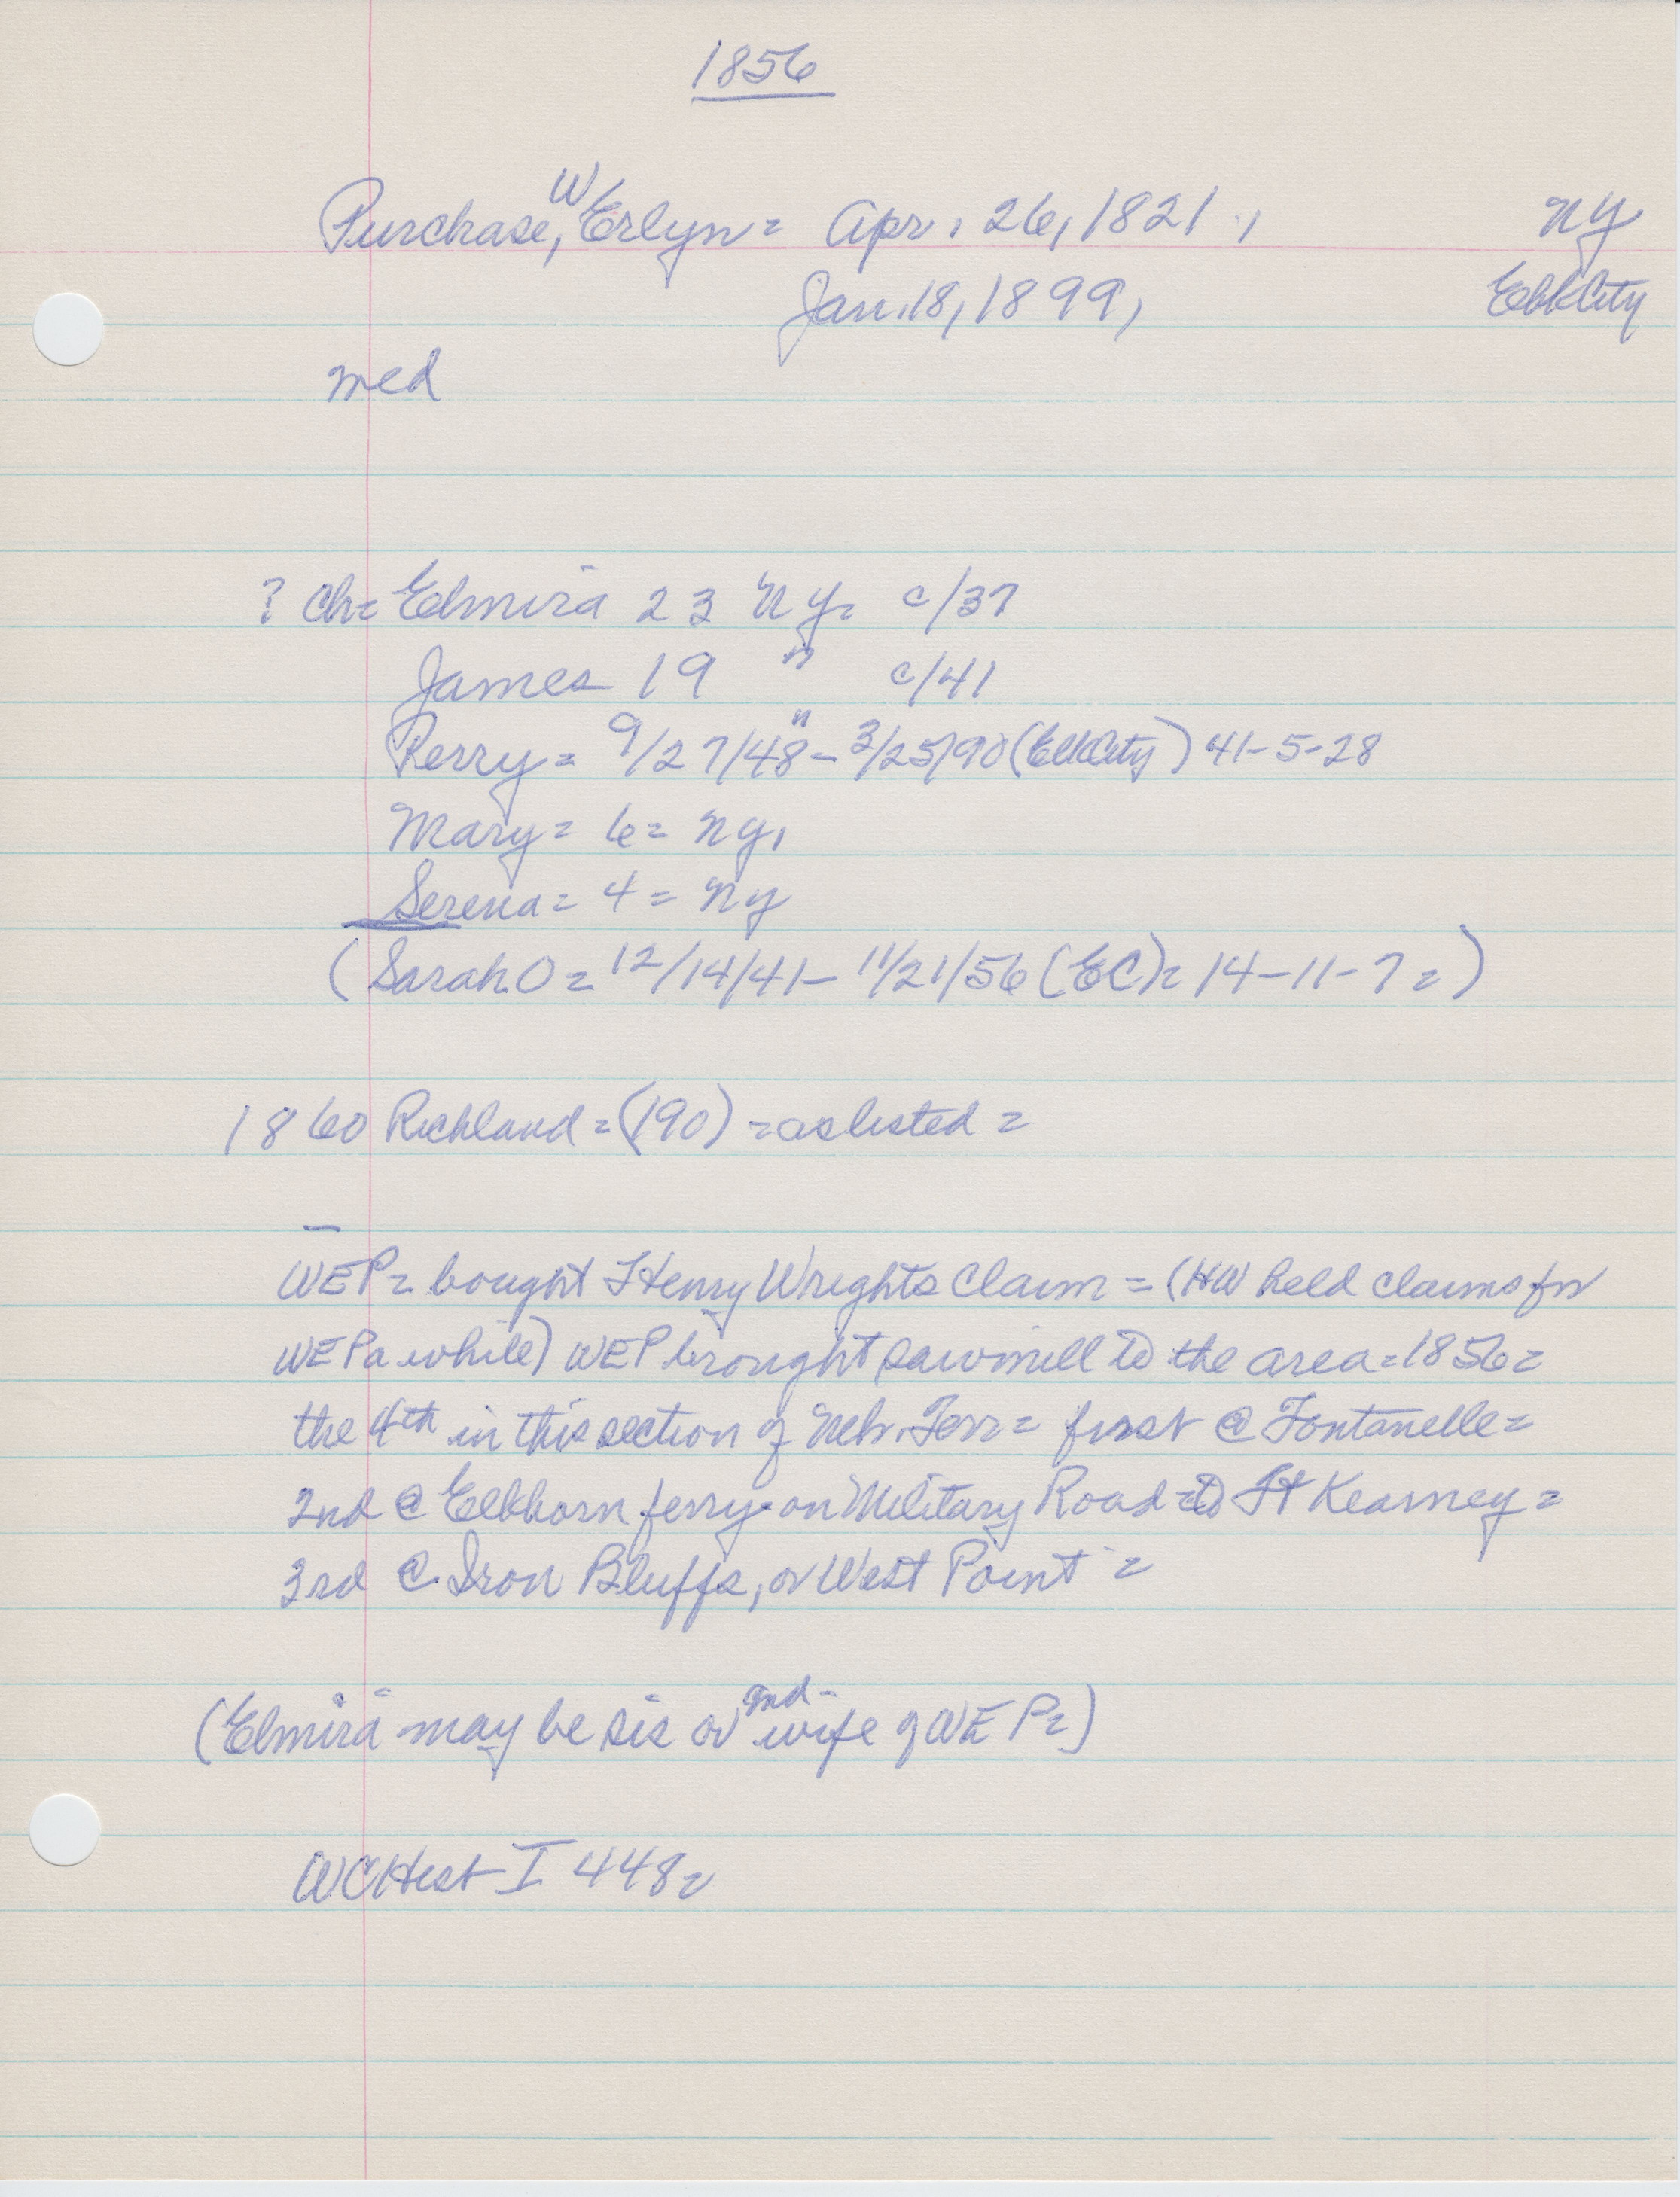 1856
Purchase, W Erlyn = Apr. 26, 1821., NY
Jan. 18, 1899, Elk City
med
? Ch = Elmira 23 NY = c/37
James 19 " c/41
Perry = 9/27/48 - 3/25/90 (Elk City) 41-5-28
Mary = 6 = NY,
Serena = 4 = NY
(Sarah O = 12/14/41 - 11/21/56 (EC) = 14-11-7 =)
1860 Richland = (190) = as listed =
WEP = bought Henry Wrights Claim = (HW held claims for
WEP a while) WEP brought sawmill to the area = 1856 =
the 4th in this section of Neb. Terr = first @ Fontanelle =
2nd @ Elkhorn ferry - on Military Road to Ft Kearney =
3rd @ Iron Bluffs, or West Point =
(Elmira may be sis or 2nd - wife of WEP =)
WCHist I 448 =